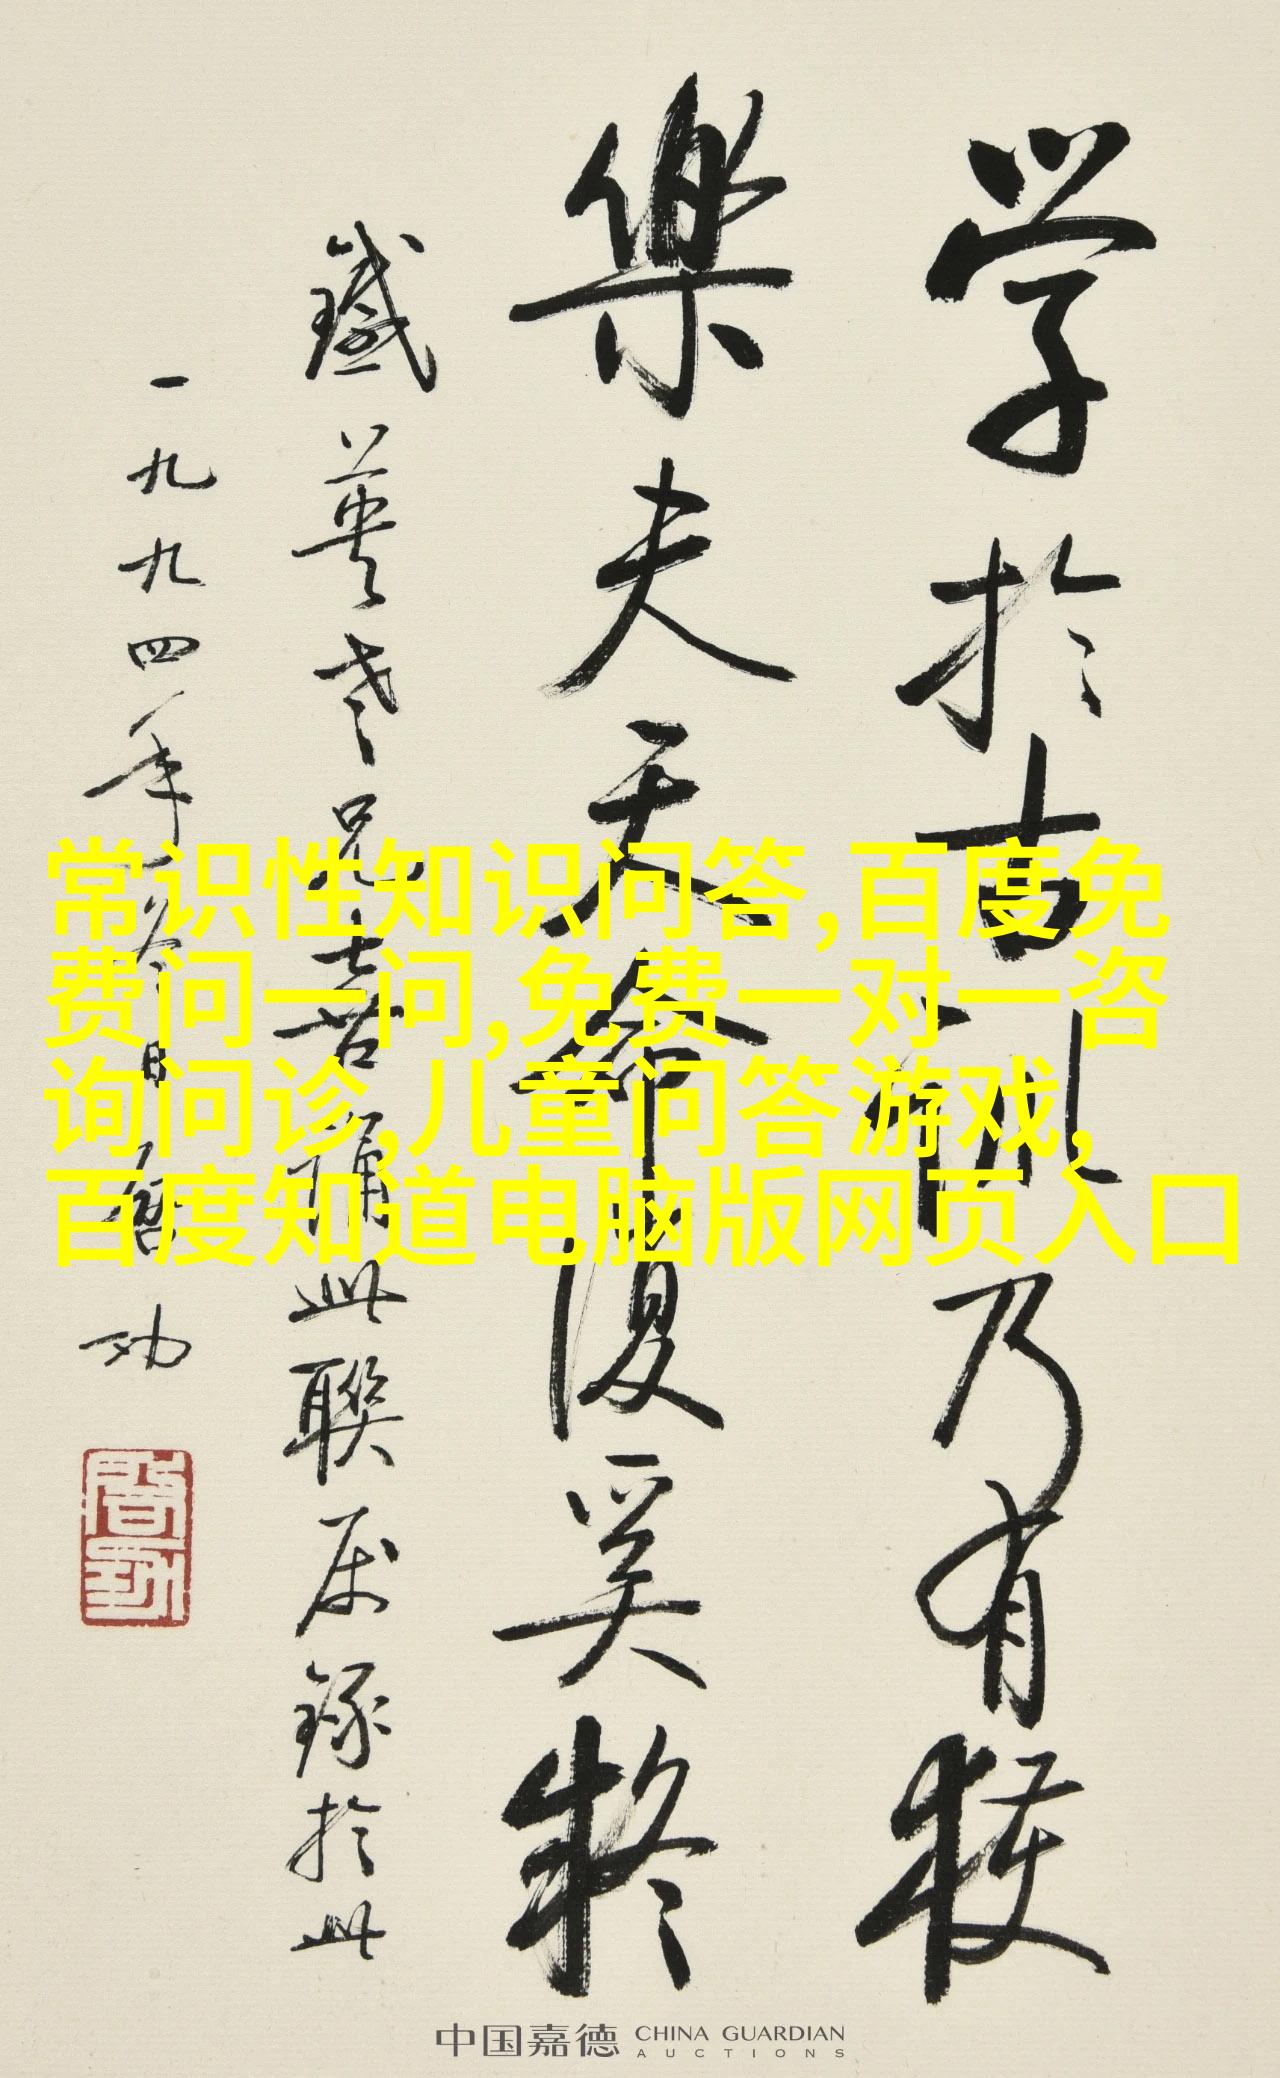 学於古訓乃有獲
樂夫天命復奚疑
鐵英老兄喜誦此聯屬錄於此
一九九四年冬日啟功
常识性知识问答,百度免
费问一问,免费一对一咨
询问诊,儿童问答游戏,
百度知道电脑版网页入口
中国嘉德 CHINA GUARDIAN
AUCTIONS